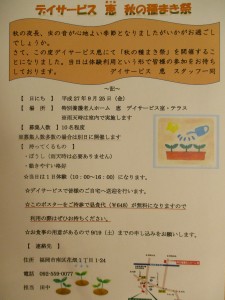 デイサービス 恵 秋の種まき祭
秋の夜長、虫の音が心地よい季節となりましたがいかがお過ごしでしょうか。
さて、この度デイサービス恵にて「秋の種まき祭」を開催することになりました。当日は体験利用という形で皆様の参加をお待ちしております。 デイサービス 恵 スタッフ一同
～記～
【 日にち 】 平成27年9月25日（金）
【 場 所 】 特別養護老人ホーム 恵 デイサービス室・テラス
※雨天時は室内で実施します
【 募集人数 】 10名程度
※募集人数多数の場合は別日に開催します
【 持ってくるもの 】
・ぼうし（雨天時は必要ありません）
・動きやすい格好
☆当日は1日体験（10：00～16：00）になります。
☆デイサービスで皆様のご自宅へ送迎を行います。
☆このポスターをご持参で昼食代（￥648）が無料になりますので
利用の際はぜひお持ちください。
☆お食事の用意があるので9/19（土）までの申し込みをお願いします。
【 連絡先 】
住所 福岡市南区花畑1丁目1-24
電話 092-559-0077
担当 田中